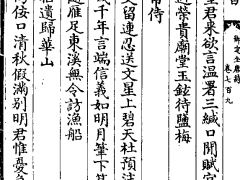 御定全唐詩
卷七百九
君来欲言溫署三緘口開賦宮
崇貴廟堂玉鉉待鹽梅
侍
文留連忍送文星上碧天杜預注
十年言端信義如明月筆下
雁足東溪無令訪漁船
遺歸華山
佞口清秋假滿別明君惟憂